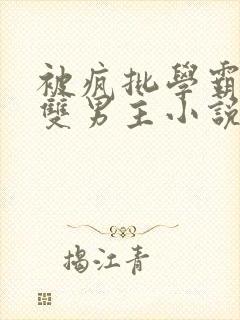 被疯批學霸
雙男主小說
揭江青